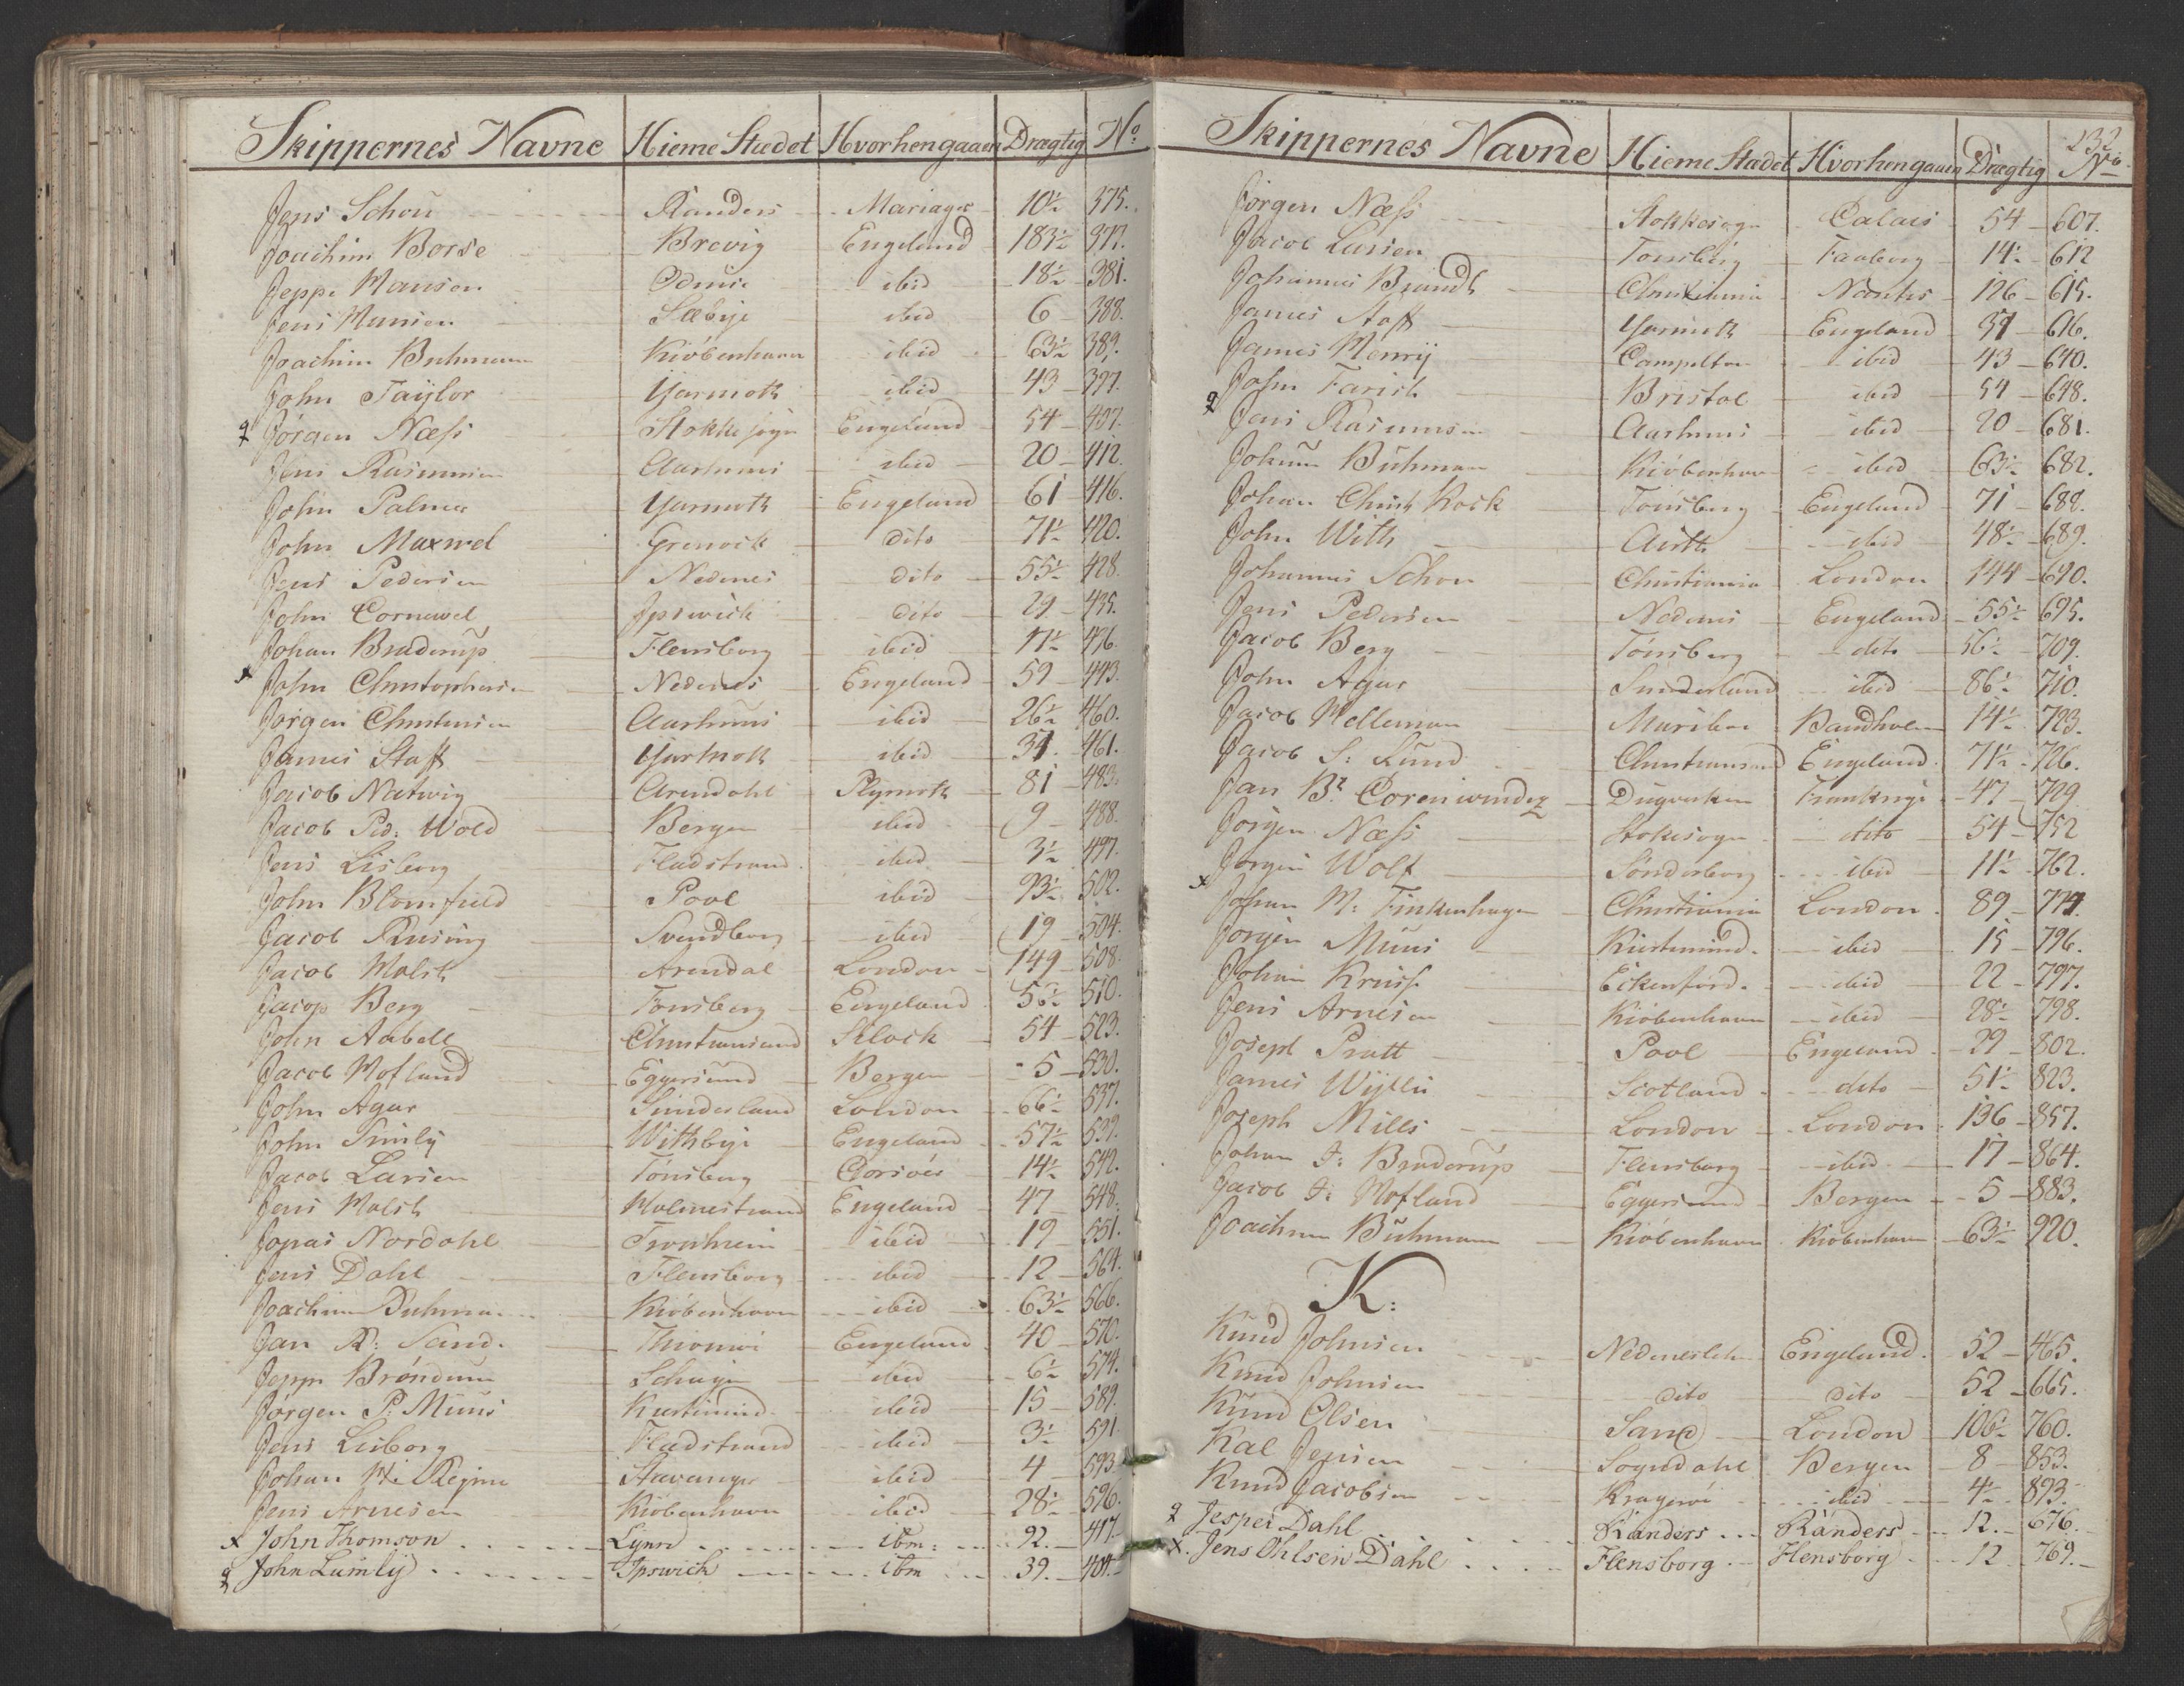 Skippernes Navne Hieme Stædet Hvorhengaaen Drægtig No.
Jens Schou Randers Mariager 10½ 375.
Joachim Borse Brevig Engeland 183½ 377.
Jeppe Hansen Odense ibid 18½ 381.
Jens Hansen Sæbye ibid 6 388.
Joachim Buhmann Kiöbenhavn ibid 63½ 389.
John Taÿlor Yarmoth ibid 43 397.
Jörgen Næss Stokkesogn Engeland 54 407.
Jens Rasmusen Aarhuus ibid 20 412.
John Palmer Yarmuth Engeland 61 416.
John Maxwel Grenock dito 71½ 420.
Jens Pedersen Nedenes dito 55½ 428.
John Cornewel Ipswich dito 29 435.
Johan Braderup Flensborg ibid 17½ 436.
John Christophersen Nedenes Engeland 59 443.
Jörgen Christensen Aarhuus ibid 26½ 460.
James Staff Yarmoth ibid 461.
Jacob Natwig Arendahl Plymoth 81 483.
Jacob Ped: Wold Bergen ibid 9 488.
Jens Lisborg Fladstrand ibid 3½ 497.
John Blomfield Pool ibid 93½ 502.
Jacob Rusing Svendborg ibid 19 504.
Jacob Holst Arendal London 149 508.
Jacop Berg Tonsberg Engeland 56½ 510.
John Aabell Christiansand Klock 54 523.
Jacob Hofland Eggersund Bergen 5 530.
John Agar Sunderland London 66½ 537.
John Smily Withbye Engeland 57½ 539.
Jacob Larsen Tönsberg Corsöer 14½ 542.
Jens Holst Holmestrand Engeland 47 548.
Jonas Nordahl Tronhiem ibid 19 551.
Jens Dahl Flensborg ibid 12 564.
Joachim Buhman Kiöbenhavn ibid 63½ 566.
Jan R: Sand. Engeland 40 570.
Jeppe Bröndum Schagen ibid 6½ 574.
Jörgen P: Muus Kiertimind ibid 15 589.
Jens Lisborg Fladstrand ibid 3½ 591.
Johan Regine Stavanger ibid 4 593.
Jens Arnesen Kiöbenhavn ibid 28½ 596.
x John Thomson Lynn ibm: 92. 417.
John Lumlÿ Ipswich ibm 39. 404.
232
Skippernes Navne Hieme Stædet Hvorhengaaen Drægtig No.
Jörgen Næss Stokkesogn Calais 54 607.
Jacob Larsen Tonsberg Faaborg 14½ 612
Johannes Brandt Christiania Nantes 126 615.
James Staff Yarmuth Engeland 616.
James Henrÿ Campelton ibid 43 640.
John Farish Bristol ibid 54 648.
Jens Rasmusen Aarhuus ibid 20 681.
Jokum Buhman Kiöbenhavn ibid 63½ 682.
Johan Christ Kock Tönsberg Engeland 71 688.
John With Airth ibid 48½ 689.
Johannes Schou Christiania London 144 690.
Jens Pedersen Nedenes Engeland 55½ 695.
Jacob Berg Tönsberg dito 56½ 709.
John Agar Sunderland ibid 86½ 710.
Jacob Holleman Mariboe Bandholm 14½ 723.
Jacob S: Lund Christiansand Engeland 71½ 726.
Jan Bt. Corenwinder Dugverken Frankrige 47 729
Jörgen Næss Stokesogn dito 54 752
Jörgen Wolf Sönderborg ibid 11½ 762.
x Johan M: Finkenhagen Christiania London 89 774.
Jörgen Muus Kiertemind. ibid 15 796.
Johan Kruse Eckenförd. ibid 22 797.
Jens Arnesen Kiöbenhavn ibid 28½ 798.
Joseph Pratt Pool Engeland 29 802.
James Wÿllie Scotland dito 51½ 823.
Joseph Mills London London 136 857.
Johan J: Braderup Flensborg ibid 17 864.
Jacob J: Hofland Eggersund Bergen 5 883.
Joachim Buhmann Kiöbenhavn Kiöbenhavn 63½ 920.
K:
Knud Johnsen Nedenes Engeland 52 465.
Knud Johnsen dito dito 52 665.
Knud Olsen Sand London 106½ 760.
Kal Jensen Sogndahl Bergen 8 853.
Knud Jacobsen Krageröe ibid 4½ 893.
Jesper Dahl Randers Randers 12. 676.
x. Jens Ohlsen Dahl Flensborg Flensborg 12 769.